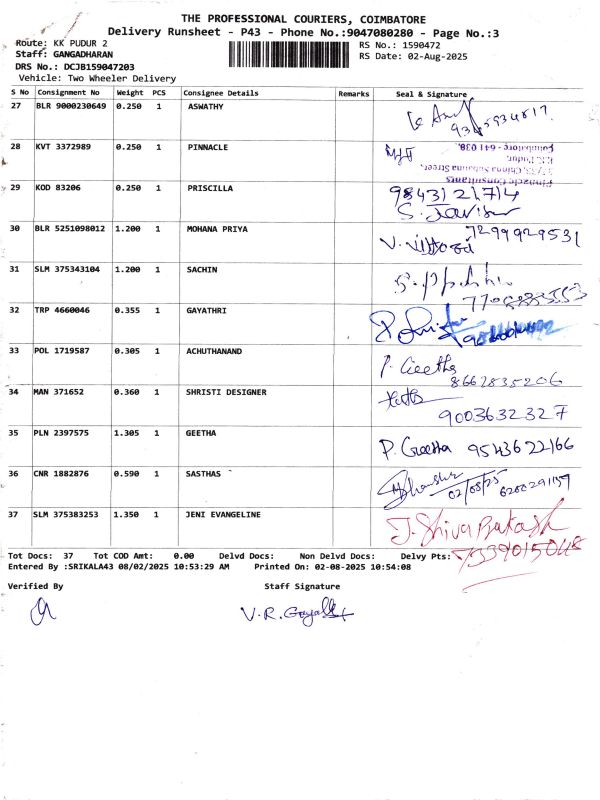 THE PROFESSIONAL COURIERS, COIMBATORE
Delivery Runsheet - P43 - Phone No.:9047080280 - Page No.:3
Route: KK PUDUR 2
RS No.: 1590472
Staff: GANGADHARAN
RS Date: 02-Aug-2025
DRS No.: DCJB159047203
Vehicle: Two Wheeler Delivery
S No Consignment No Weight PCS Consignee Details Remarks Seal & Signature
27 BLR 9000230649 0.250 1 ASWATHY
28 KVT 3372989 0.250 1 PINNACLE
Pinnacle Consultants
Coimbatore - 641 038.
29 KOD 83206 0.250 1 PRISCILLA 9843121714
30 BLR 5251098012 1.200 1 MOHANA PRIYA 7299929531
31 SLM 375343104 1.200 1 SACHIN
32 TRP 4660046 0.355 1 GAYATHRI
33 POL 1719587 0.305 1 ACHUTHANAND P. Geetha
8662835206
34 MAN 371652 0.360 1 SHRISTI DESIGNER
9003632327
35 PLN 2397575 1.305 1 GEETHA P. Geetha 9543622166
36 CNR 1882876 0.590 1 SASTHAS 02/08/25
37 SLM 375383253 1.350 1 JENI EVANGELINE J. Shiva Prakash
Tot Docs: 37 Tot COD Amt: 0.00 Delvd Docs: Non Delvd Docs: Delvy Pts:
Entered By :SRIKALA43 08/02/2025 10:53:29 AM Printed On: 02-08-2025 10:54:08
Verified By Staff Signature